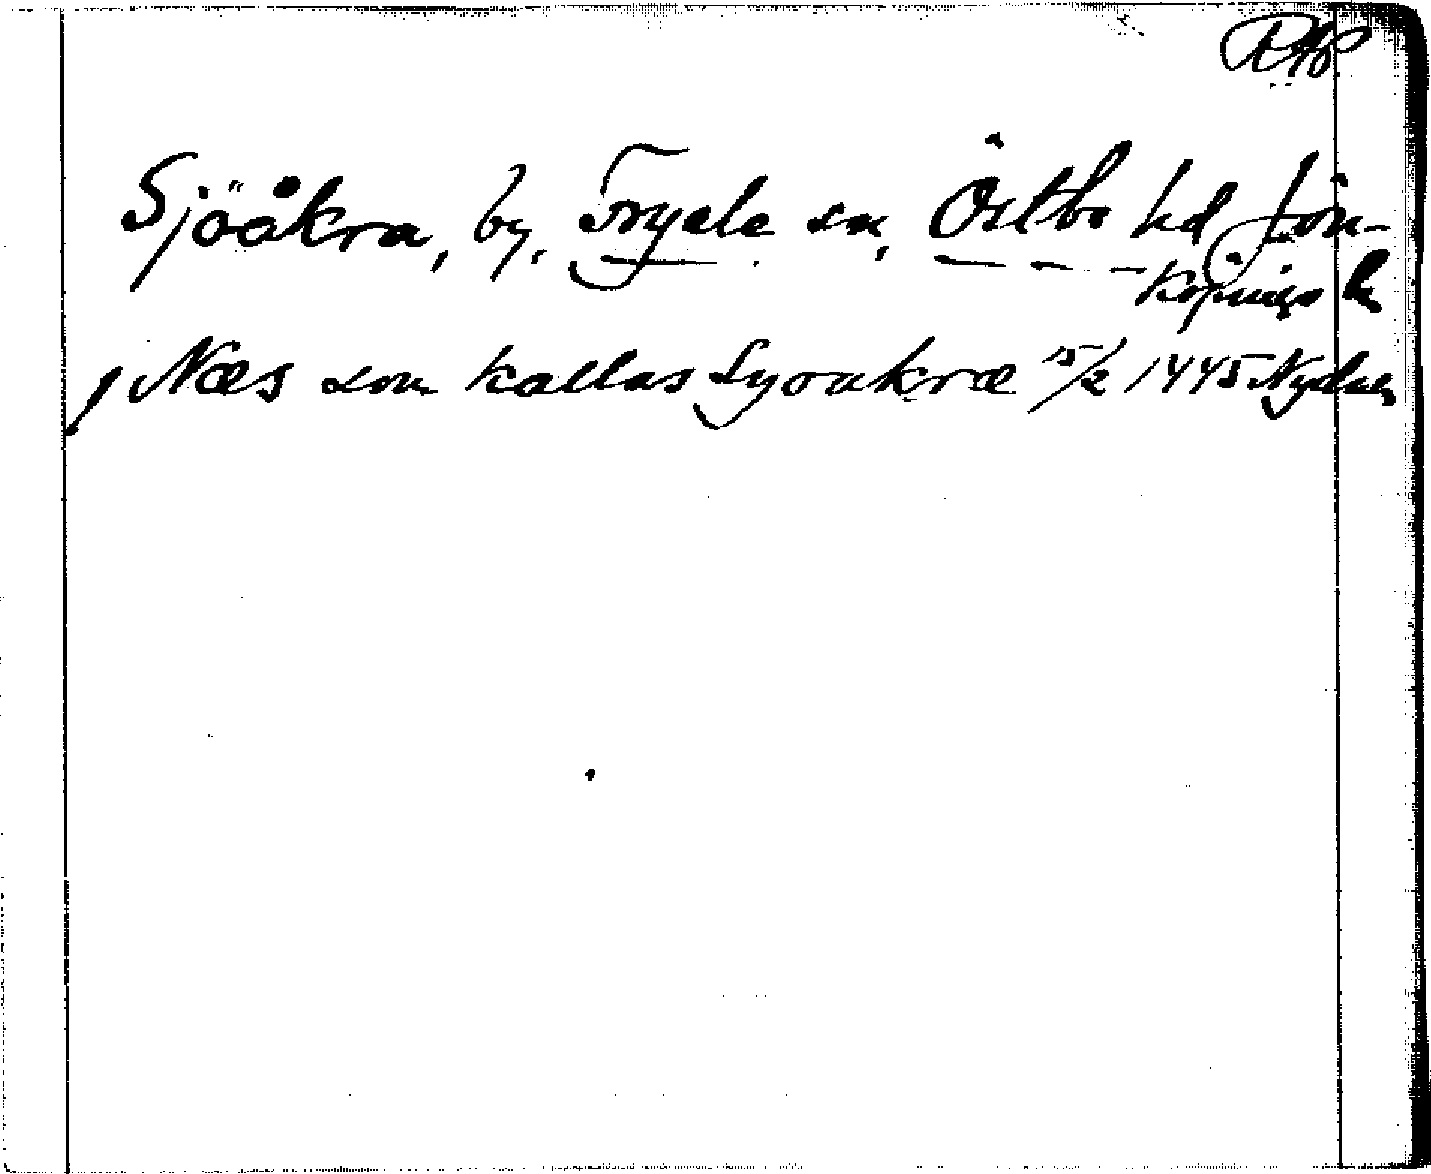 RAp
Sjöåkra, by, Tryde sn, Östbo hd Jön-
köpings l.
j Næs som kallas Syoakræ 15/2 1445 Nydala